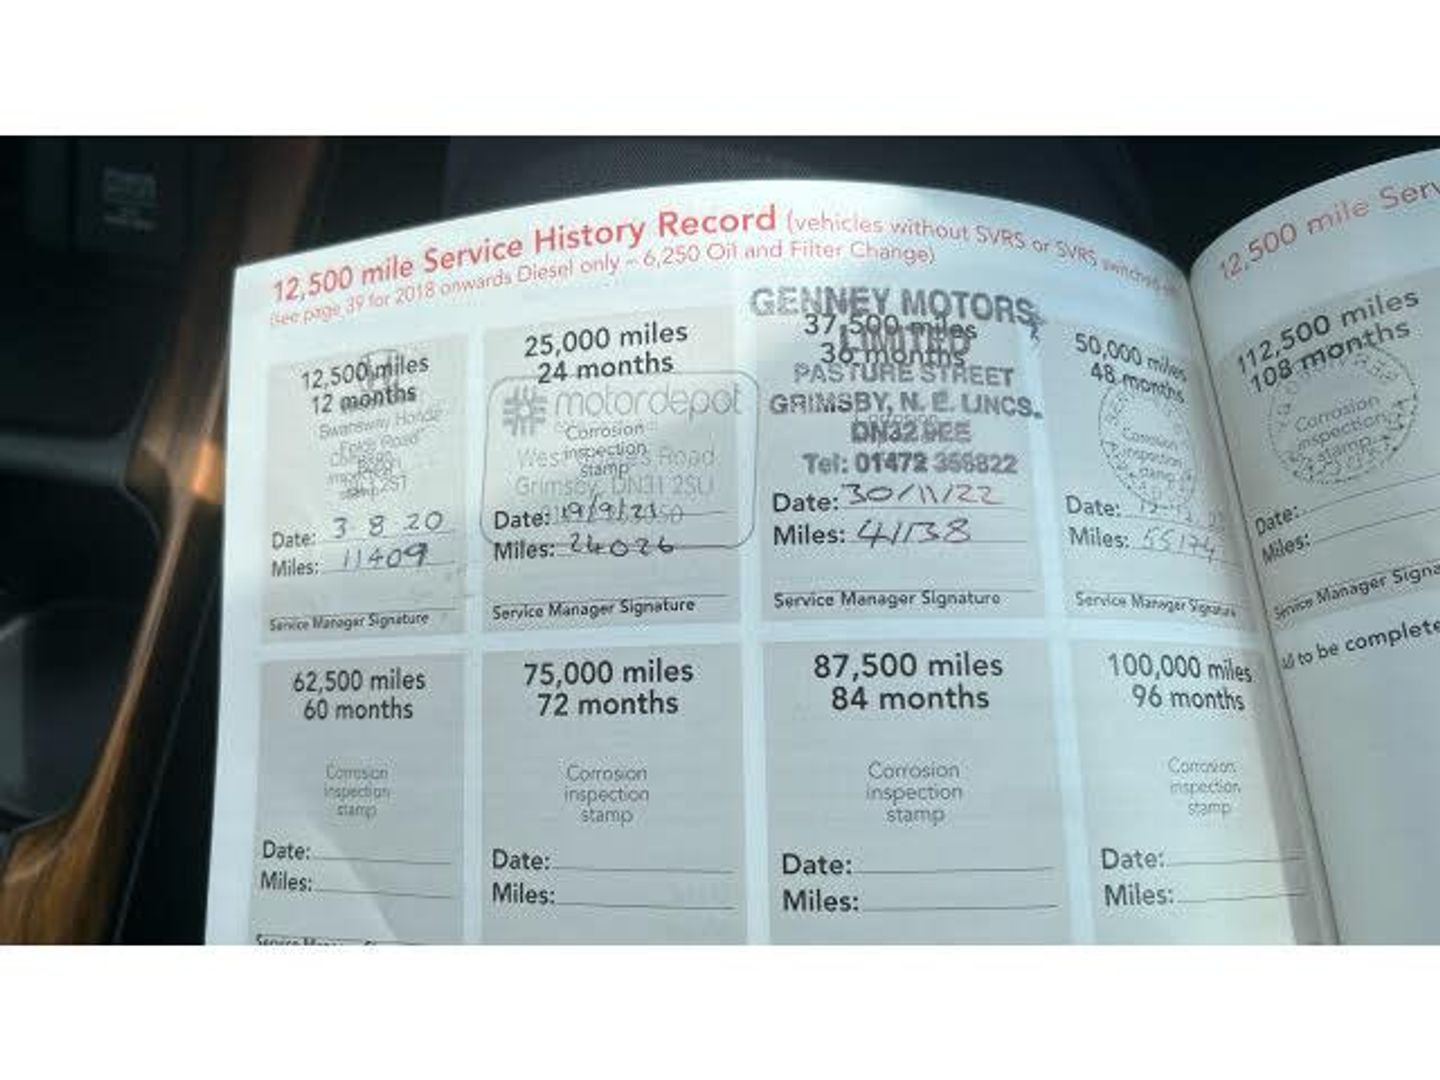 12,500 mile Service History Record (vehicles without SVRS or SVRS switched
(see page 39 for 2018 onwards Diesel only - 6,250 Oil and Filter Change)
12,500 miles
12 months
Swansway Honda
Road
Corrosion
2ST
stamp
Date: 3 8 20
Miles: 11409
Service Manager Signature
25,000 miles
24 months
motordepot
Corrosion
inspection
stamp
West Road
Grimsby, DN31 2SU
Date: 19/9/21
Miles: 24026
Service Manager Signature
GENNEY MOTORS
LIMITED
37,500 miles
36 months
PASTURE STREET
GRIMSBY, N. E. LINCS.
DN32 9EE
Tel: 01472 358822
Date: 30/11/22
Miles: 41138
Service Manager Signature
50,000 miles
48 months
Corrosion
inspection
stamp
Date:
Miles: 55174
Service Manager Signature
62,500 miles
60 months
Corrosion
inspection
stamp
Date:
Miles:
75,000 miles
72 months
Corrosion
inspection
stamp
Date:
Miles:
87,500 miles
84 months
Corrosion
inspection
stamp
Date:
Miles:
100,000 miles
96 months
Corrosion
inspection
stamp
Date:
Miles:
12,500 mile Serv
112,500 miles
108 months
Corrosion
inspection
stamp
Date:
Miles:
Service Manager Signa
to be complete